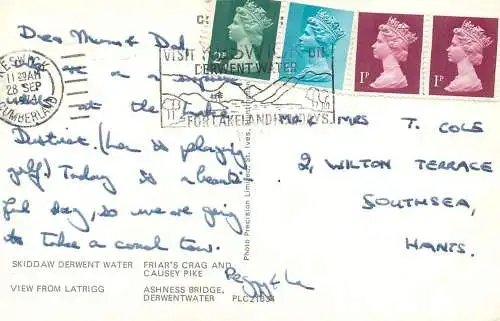 Dear Mum & Dad
are on a
course at the Lake
District. (Len is playing
golf) Today is a beauti-
ful day, so we are going
to take a coach tour.
Peggy & Len
VISIT KESWICK ON
DERWENTWATER
FOR LAKELAND HOLIDAYS
KESWICK
11 30AM
28 SEP
CUMBERLAND
1P
1P
MR & MRS T. COLE
2, WILTON TERRACE
SOUTHSEA,
HANTS.
Photo Precision Limited, St. Ives,
SKIDDAW DERWENT WATER
FRIAR'S CRAG AND
CAUSEY PIKE
VIEW FROM LATRIGG
ASHNESS BRIDGE,
DERWENTWATER
PLC21834